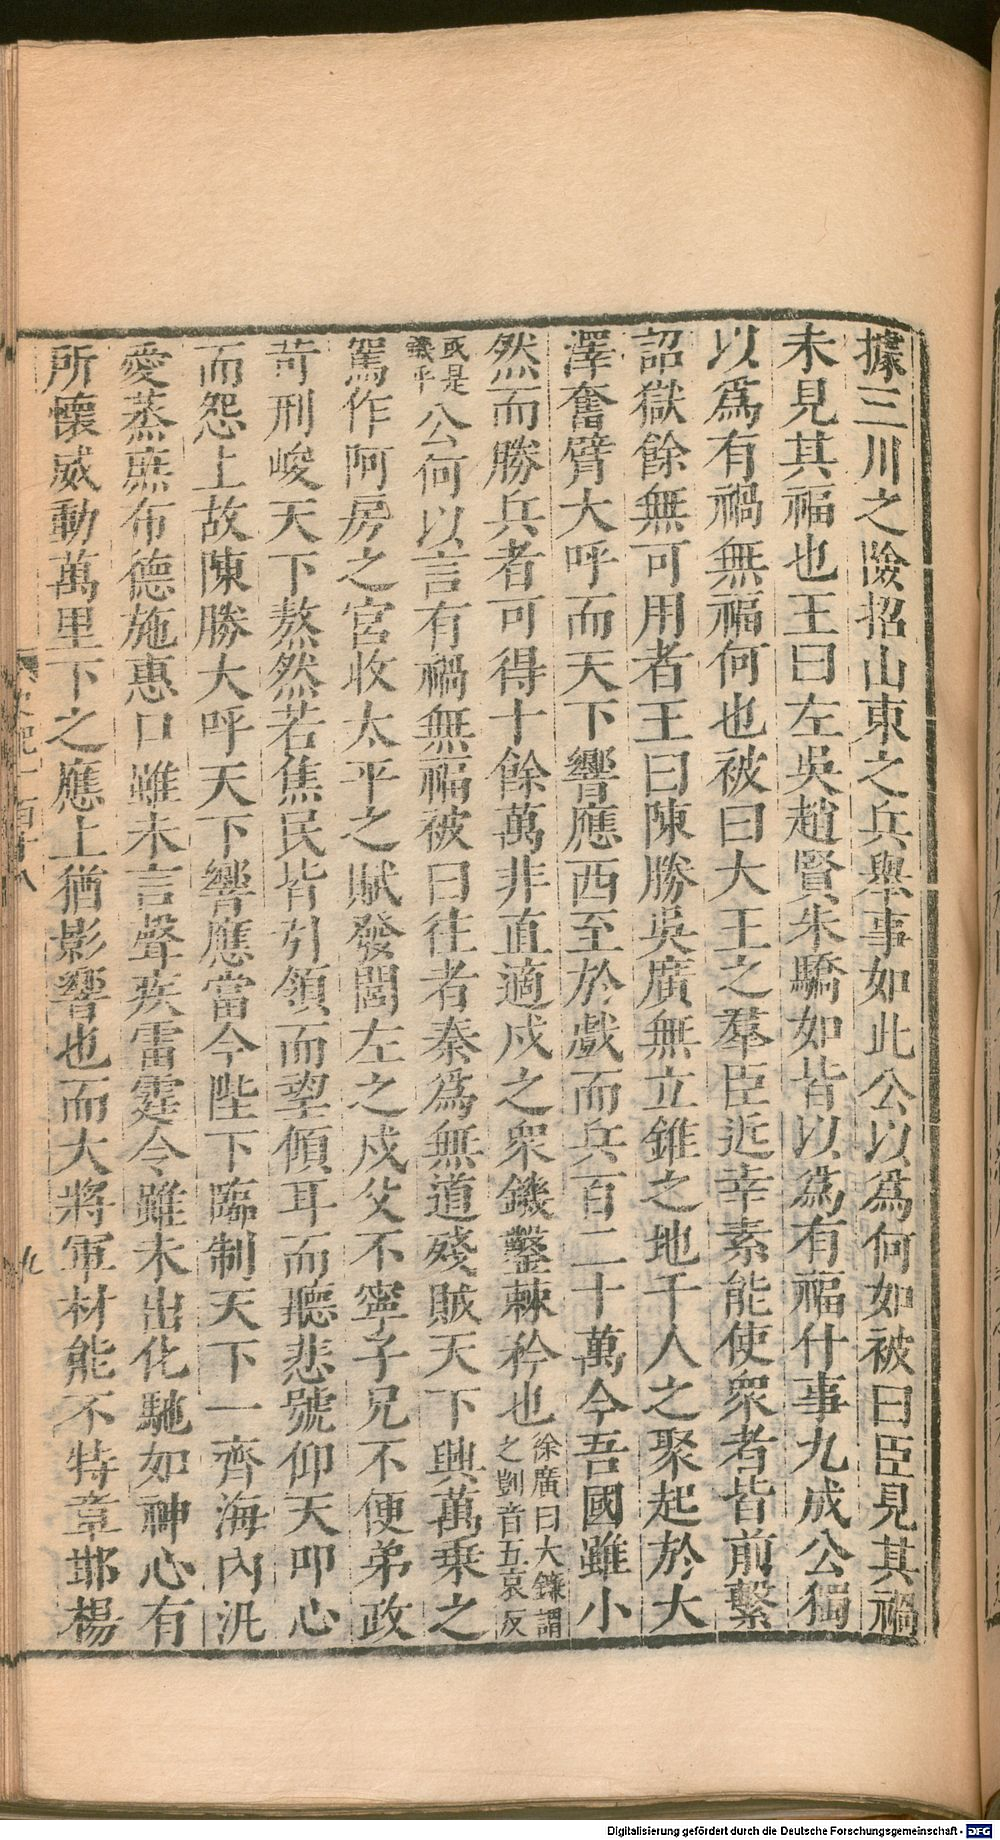 據三川之險招山東之兵舉事如此公以爲何如被曰臣見其禍
未見其福也王曰左吳趙賢朱驕如皆以爲有福什事九成公獨
以爲有禍無福何也被曰大王之羣臣近幸素能使衆者皆前繫
詔獄餘無可用者王曰陳勝吳廣無立錐之地千人之聚起於大
澤奮臂大呼而天下響應西至於戲而兵百二十萬今吾國雖小
然而勝兵者可得十餘萬非直適戍之衆鐖鑿棘矜也徐廣曰大鐮謂
之剴音五哀反
或是
鐖乎公何以言有禍無福被曰往者秦爲無道殘賊天下興萬乘之
駕作阿房之宮收太平之賦發閭左之戍父不寧子兄不便弟政
苛刑峻天下熬然若焦民皆引領而望傾耳而聽悲號仰天叩心
而怨上故陳勝大呼天下響應當今陛下臨制天下一齊海內汎
愛蒸庶布德施惠口雖未言聲疾雷霆令雖未出化馳如神心有
所懷威動萬里下之應上猶影響也而大將軍材能不特章邯楊
史記一百十八
九
Digitalisierung gefördert durch die Deutsche Forschungsgemeinschaft - DFG